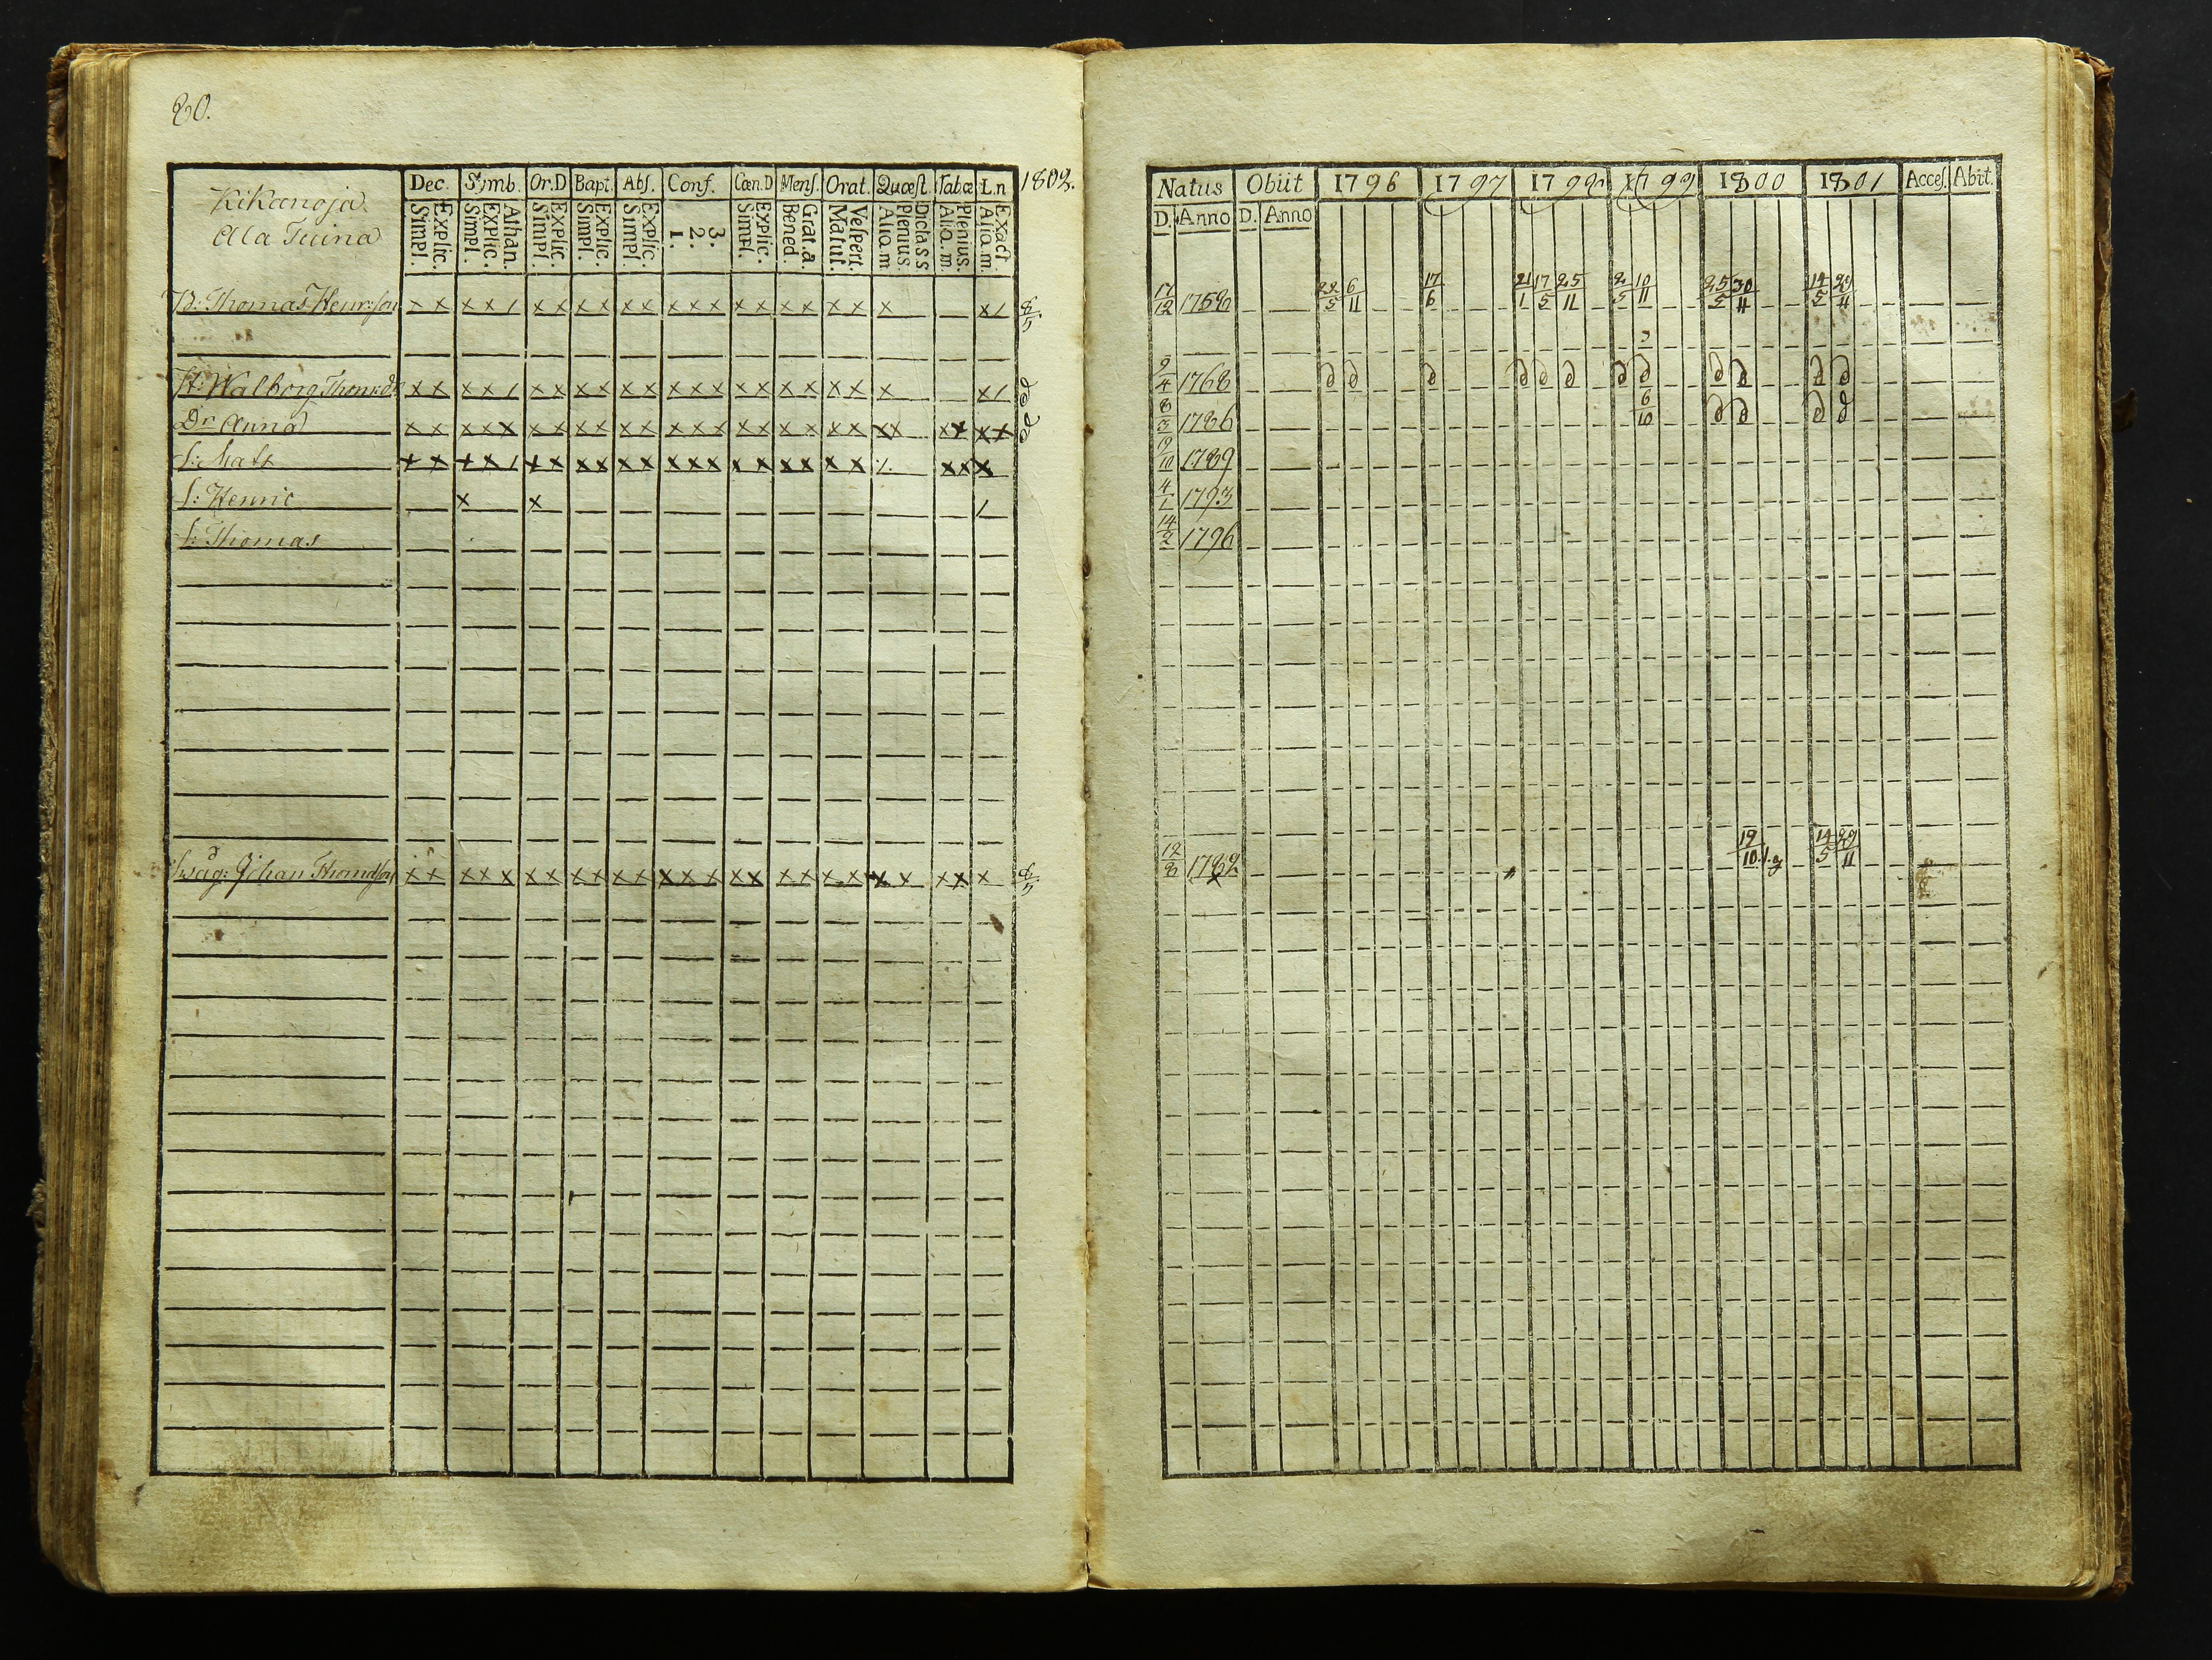 80.
Kikanoja
Ala Tuina
Dec. Symb. Or.D Bapt. Abs. Conf. Cœn.D Mens. Orat. Quæst. Tabæ L.n 1802.
Simpl. Explic. Simpl. Explic. Athan. Simpl. Explic. Simpl. Explic. Simpl. Explic. 1. 2. 3. Simpl. Explic. Bened. Grat.a. Matut. Vespert. Alia.m Plenius Dict.ass Alia.m. Plenius. Alia.m. Exact
B: Thomas Henrsson x x x x / x x x x x x x x x x x x x x x x x /
H: Walborg Thom:dr x x x x / x x x x x x x x x x x x x x x x x / d
Dr Anna x x x x x x x x x x x x x x x x x x x x x x x x x x d
S: Mats x x x x / x x x x x x x x x x x x x x x /. x x x
S: Henric x x /
S: Thomas
Swåg: Johan Thomasson x x x x x x x x x x x x x x x x x x x x x x x x x
Natus Obiit 1796 1797 1798 1799 1800 1801 Acces. Abit.
D. Anno D. Anno
17/12 1758 22/5 6/11 17/6 21/1 17/5 25/11 2/5 10/11 25/5 30/11 14/5
9/4 1768 d d d d d d d d d d d d
8/3 1786 6/10 d d d d
9/10 1789
4/1 1793
14/2 1796
12/8 1782 19/10 14/5